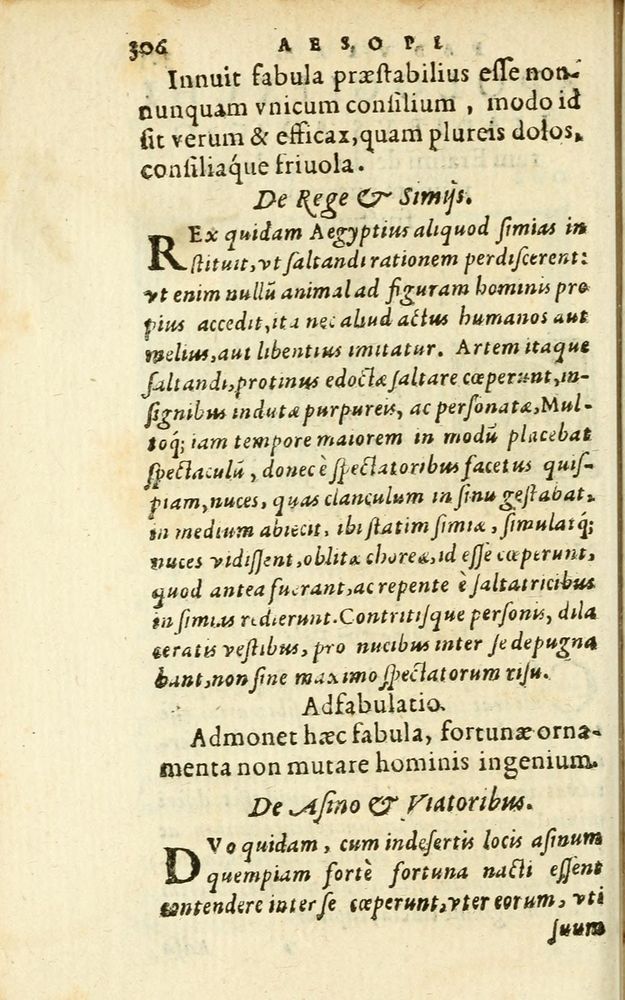 306 AESOPI
Innuit fabula præstabilius esse non-
nunquam vnicum consilium, modo id
sit verum & efficax, quam plureis dolos,
consiliáque friuola.
De Rege & Simijs.
REx quidam Aegyptius aliquod simias in
stituit, vt saltandi rationem perdiscerent:
vt enim nullũ animal ad figuram hominis pro
pius accedit, ita nec aliud actus humanos aut
melius, aut libentius imitatur. Artem itaque
saltandi, protinus edoctæ saltare cœperunt, in-
signibus indutæ purpureis, ac personatæ, Mul-
toq́; iam tempore maiorem in modũ placebat
spectaculũ, donec è spectatoribus facetus quis-
piam, nuces, quas clanculum in sinu gestabat,
in medium abiecit, ibi statim simiæ, simulatq́;
nuces vidissent, oblitæ choreæ, id esse cœperunt,
quod antea fuerant, ac repente è saltatricibus
in simias redierunt. Contritisque personis, dila
ceratis vestibus, pro nucibus inter se depugna
bant, non sine maximo spectatorum risu.
Adfabulatio.
Admonet hæc fabula, fortunæ orna-
menta non mutare hominis ingenium.
De Asino & Viatoribus.
DVo quidam, cum indesertis locis asinum
quempiam fortè fortuna nacti essent
contendere inter se cœperunt, vter eorum, vti
suum